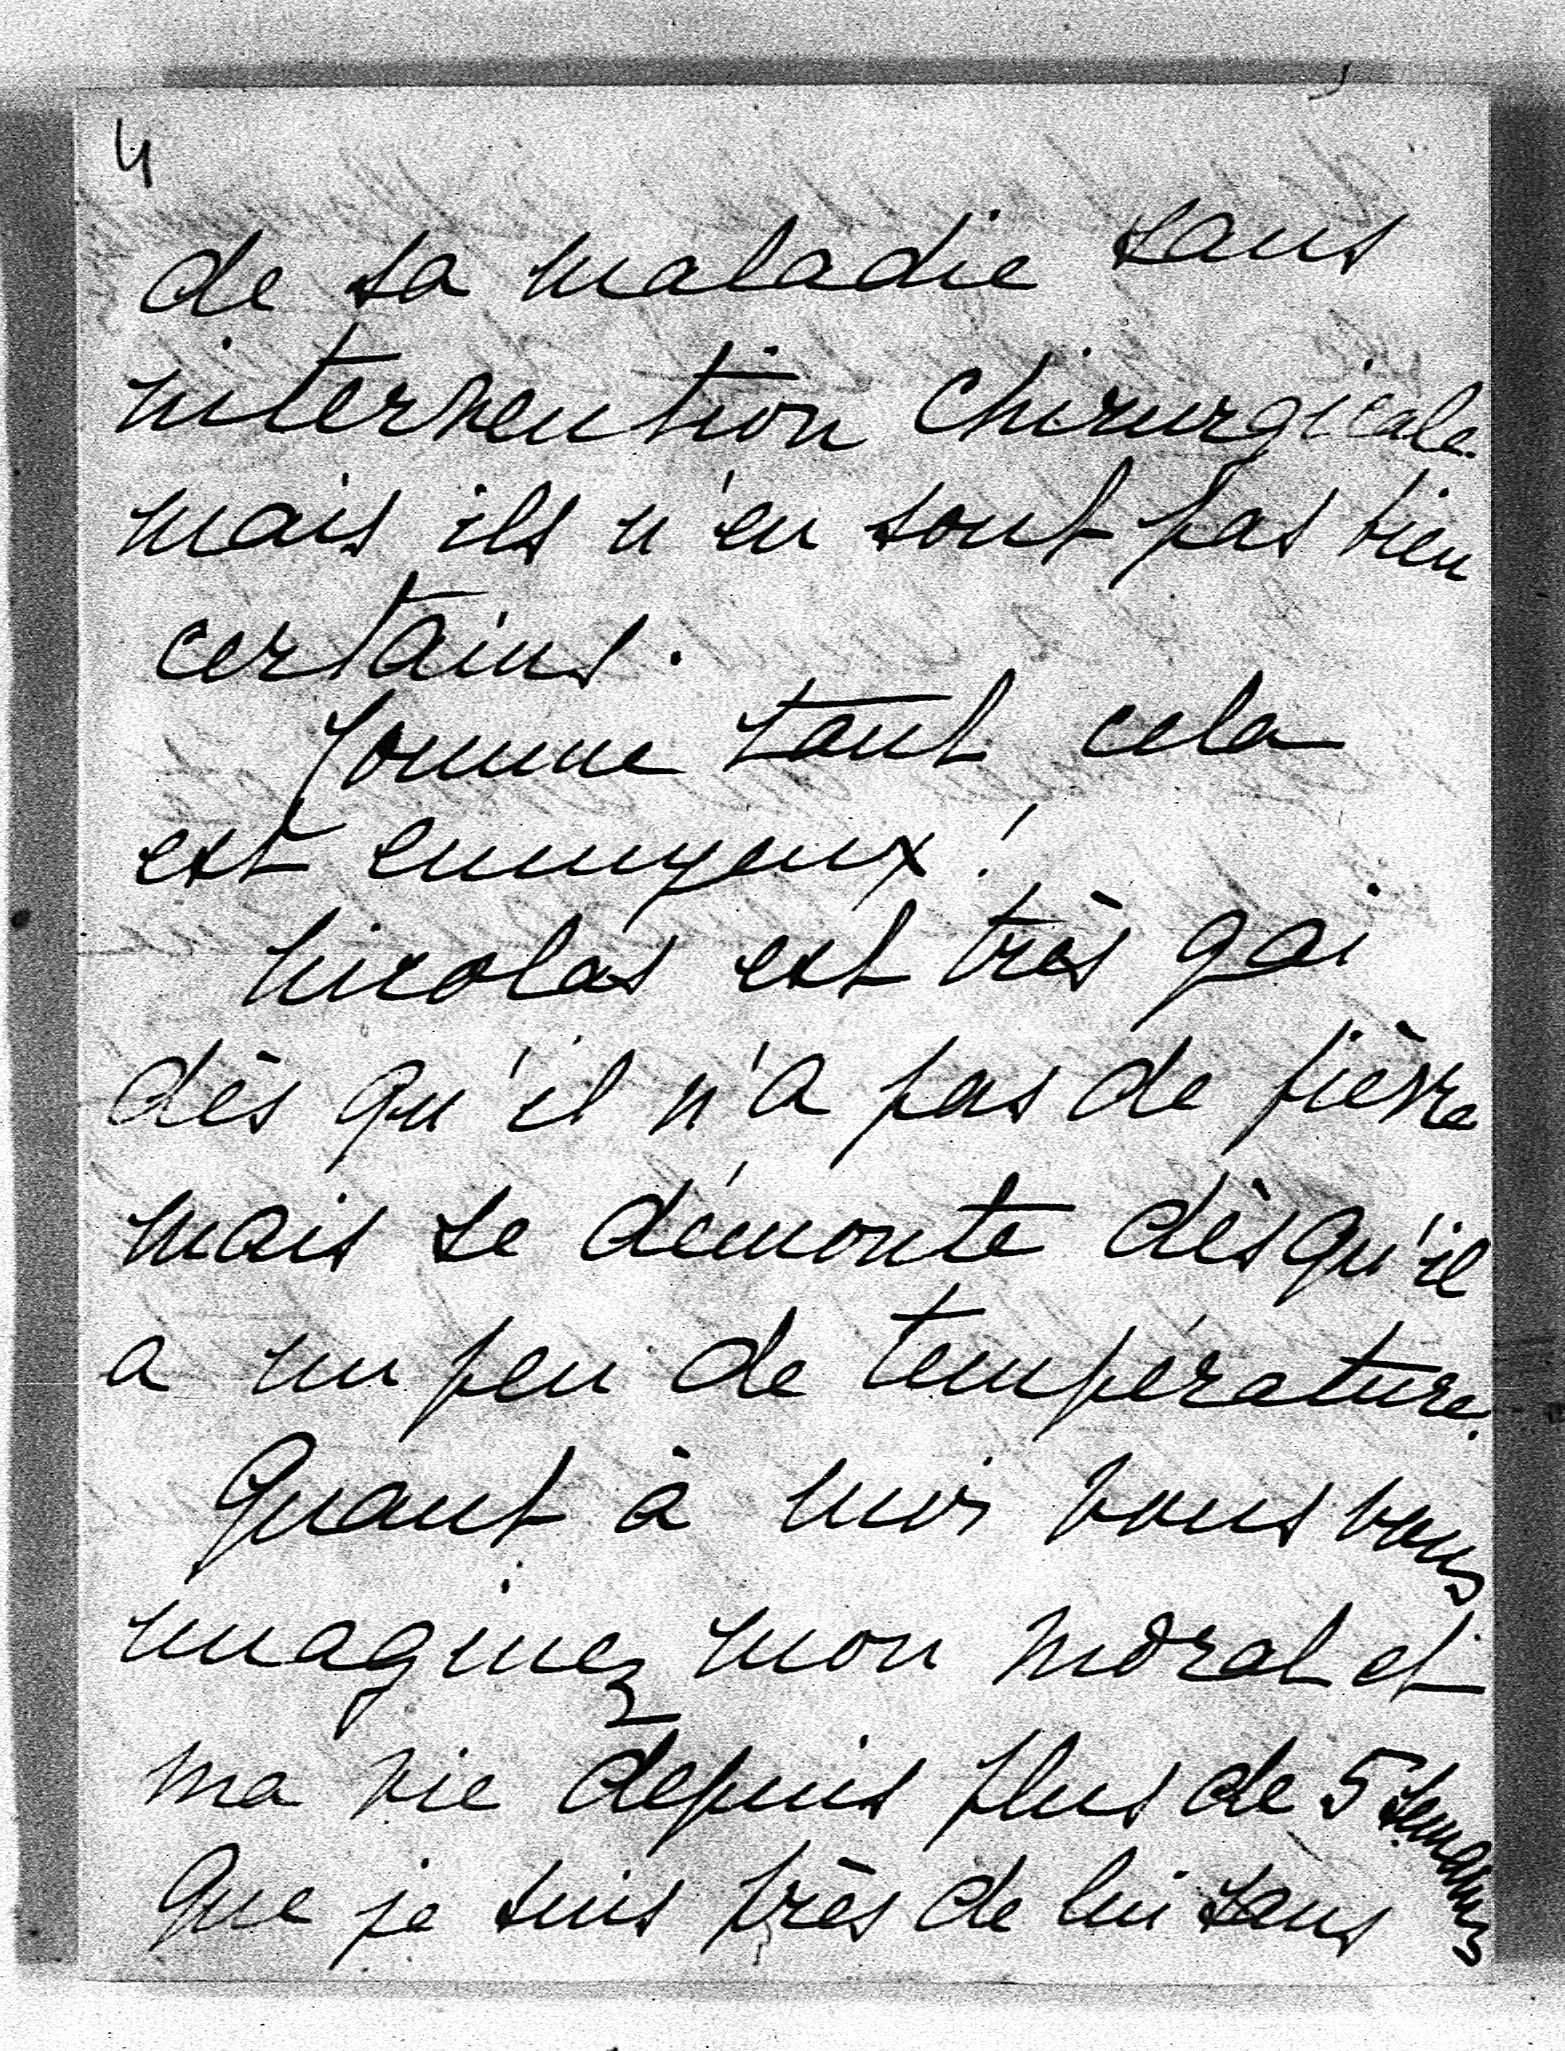 4
de sa maladie sans
intervention chirurgicale
mais ils n'en sont pas bien
certains.
Comme tout cela
est ennuyeux !
Nicolas est très gai
dès qu'il n'a pas de fièvre
mais se démonte dès qu'il
a un peu de température.
Quant à moi vous vous
imaginez mon moral et
ma vie depuis plus de 5 semaines
que je suis près de lui sans